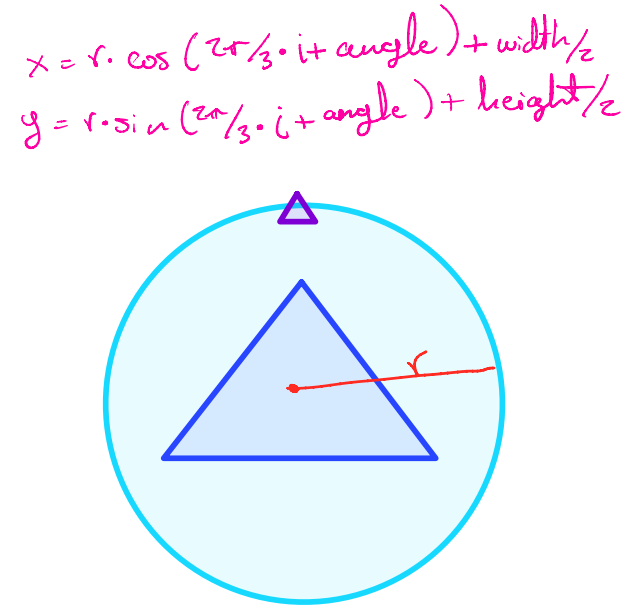 x = r · cos (2π/3 · i + angle) + width/2
y = r · sin (2π/3 · i + angle) + height/2
r